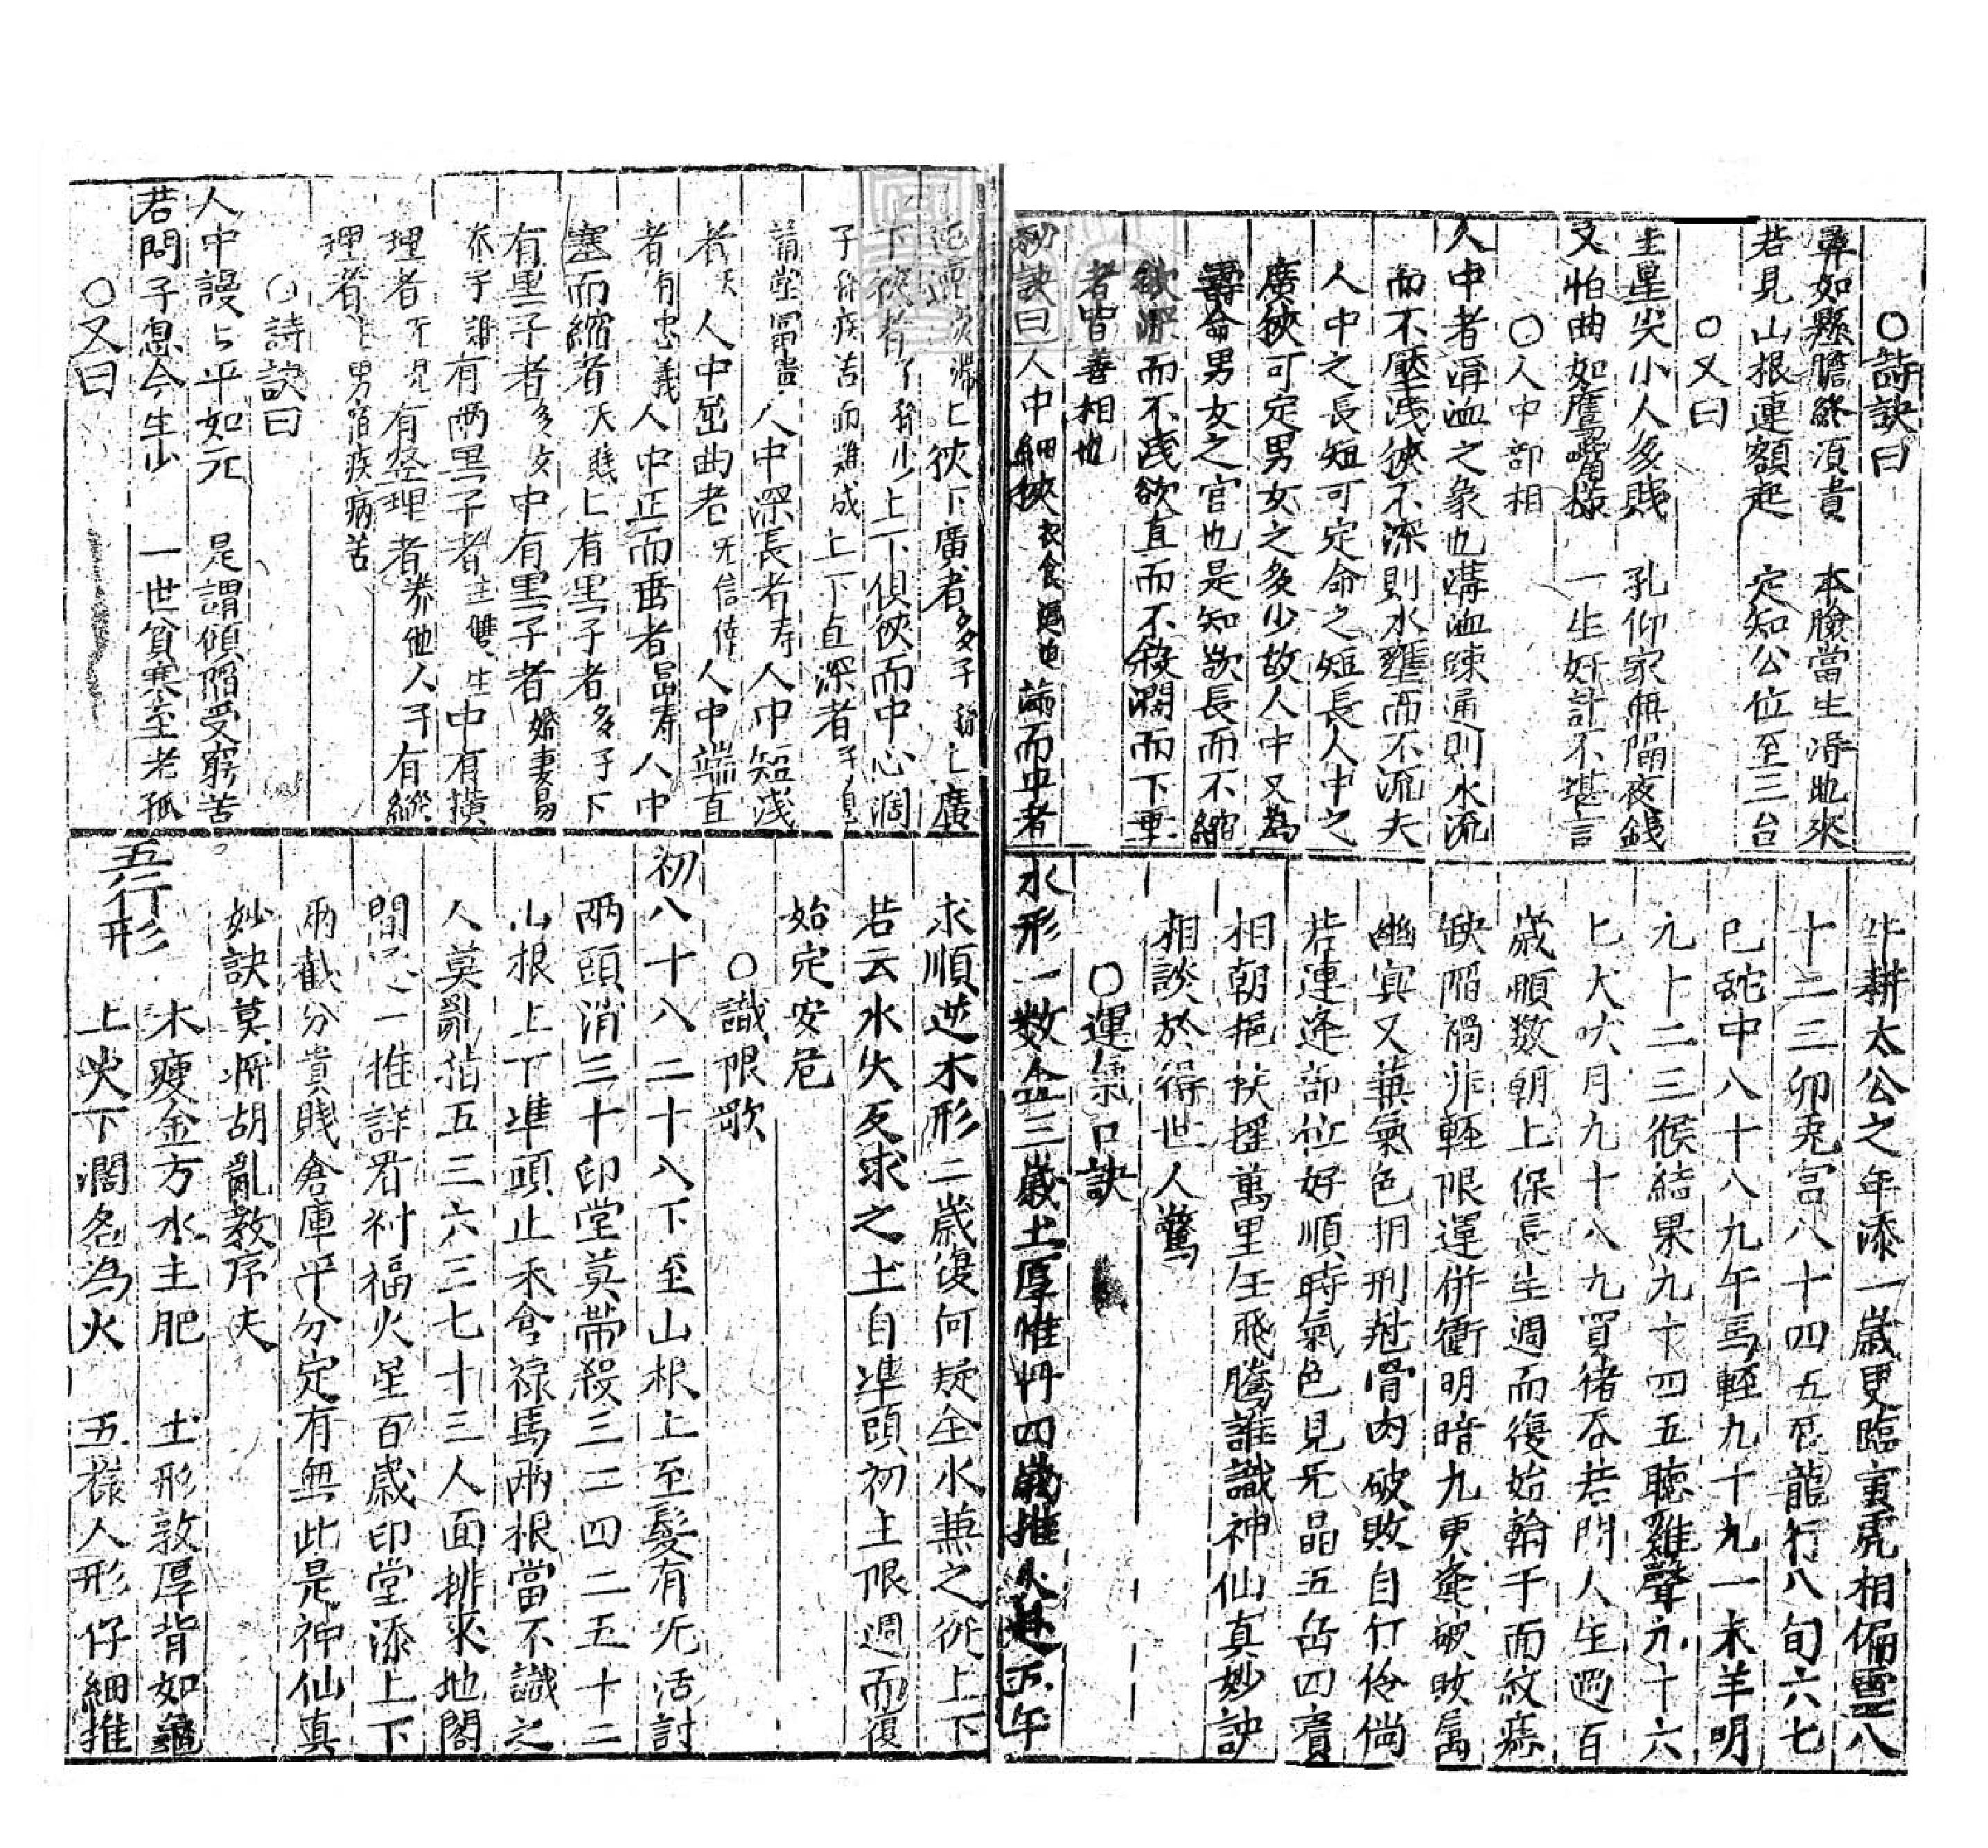 ○詩訣曰
鼻如懸膽終須貴　本臉當生淂地來
若見山根連額起　定知公位至三台
○又曰
圭星尖小人多賤　孔仰家無隔夜錢
又怕曲如鷹嘴樣　一生奸計不堪言
○人中部相
人中者溝洫之象也溝洫疎通則水流
而不壅浅狹不深則水壅而不流夫
人中之長短可定命之短長人中之
廣狹可定男女之多少故人中又為
壽命男女之官也是知欲長而不縮
欲深而不浅欲直而不斜濶而下垂
者皆善相也
妙訣曰人中細狹衣食逼迫滿而平者
迍邅災滯上狹下廣者多子孫上廣
下狹者了孫少上下俱狹而中心濶
子孫疾苦而难成上下直深者子息
滿堂富貴人中深長者寿人中短浅
者夭人中屈曲者旡信倖人中端直
者有忠義人中正而垂者富寿人中
塞而縮者夭賤上有黒子者多子下
有黒子者多女中有黒子者婚妻易
养子難有两黒子者主雙生中有横
理者不児有竖理者养他人子有縱
理者主男宿疾病苦
○詩訣曰
人中謾上平如元　是謂傾陷受窮苦
若問子息今生少　一世貧寒至老孤
○又曰
牛耕太公之年添一歲更臨寅虎相偏靈八
十二三卯兎宮八十四五辰龍行八旬六七
巳蛇中八十八九午馬輕九十九一未羊明
九十二三猴結果九十四五聴雞聲九十六
七犬吠月九十八九買猪吞若問人生過百
歲順数朝上保長生週而復始輪干面紋痣
缺陷禍非輕限運併衝明暗九更逢破敗属
幽冥又兼氣色相刑尅骨肉破敗自伶仃倘
若運逢部位好順時氣色見光晶五岳四瀆
相朝挹扶揺萬里任飛騰誰識神仙真妙訣
相談於得世人驚
○運氣口訣
水形一数金三歲土厚惟将四歲推火赴五年
求順逆木形二歲復何疑金水兼之從上下
若云水火反求之土自準頭初主限週而復
始定安危
○識限歌
初八十八二十八下至山根上至髮有旡活討
两頭消三十印堂莫帶殺三二四二五十二
山根上下準頭止禾倉禄馬兩根當不識之
人莫亂指五三六三七十三人面排來地閣
間逐一推詳看禍福火星百歲印堂添上下
兩截分貴賤倉庫平分定有無此是神仙真
妙訣莫将胡亂教序夫
五行形
木瘦金方水主肥　土形敦厚背如龜
上尖下濶名為火　五樣人形仔細推